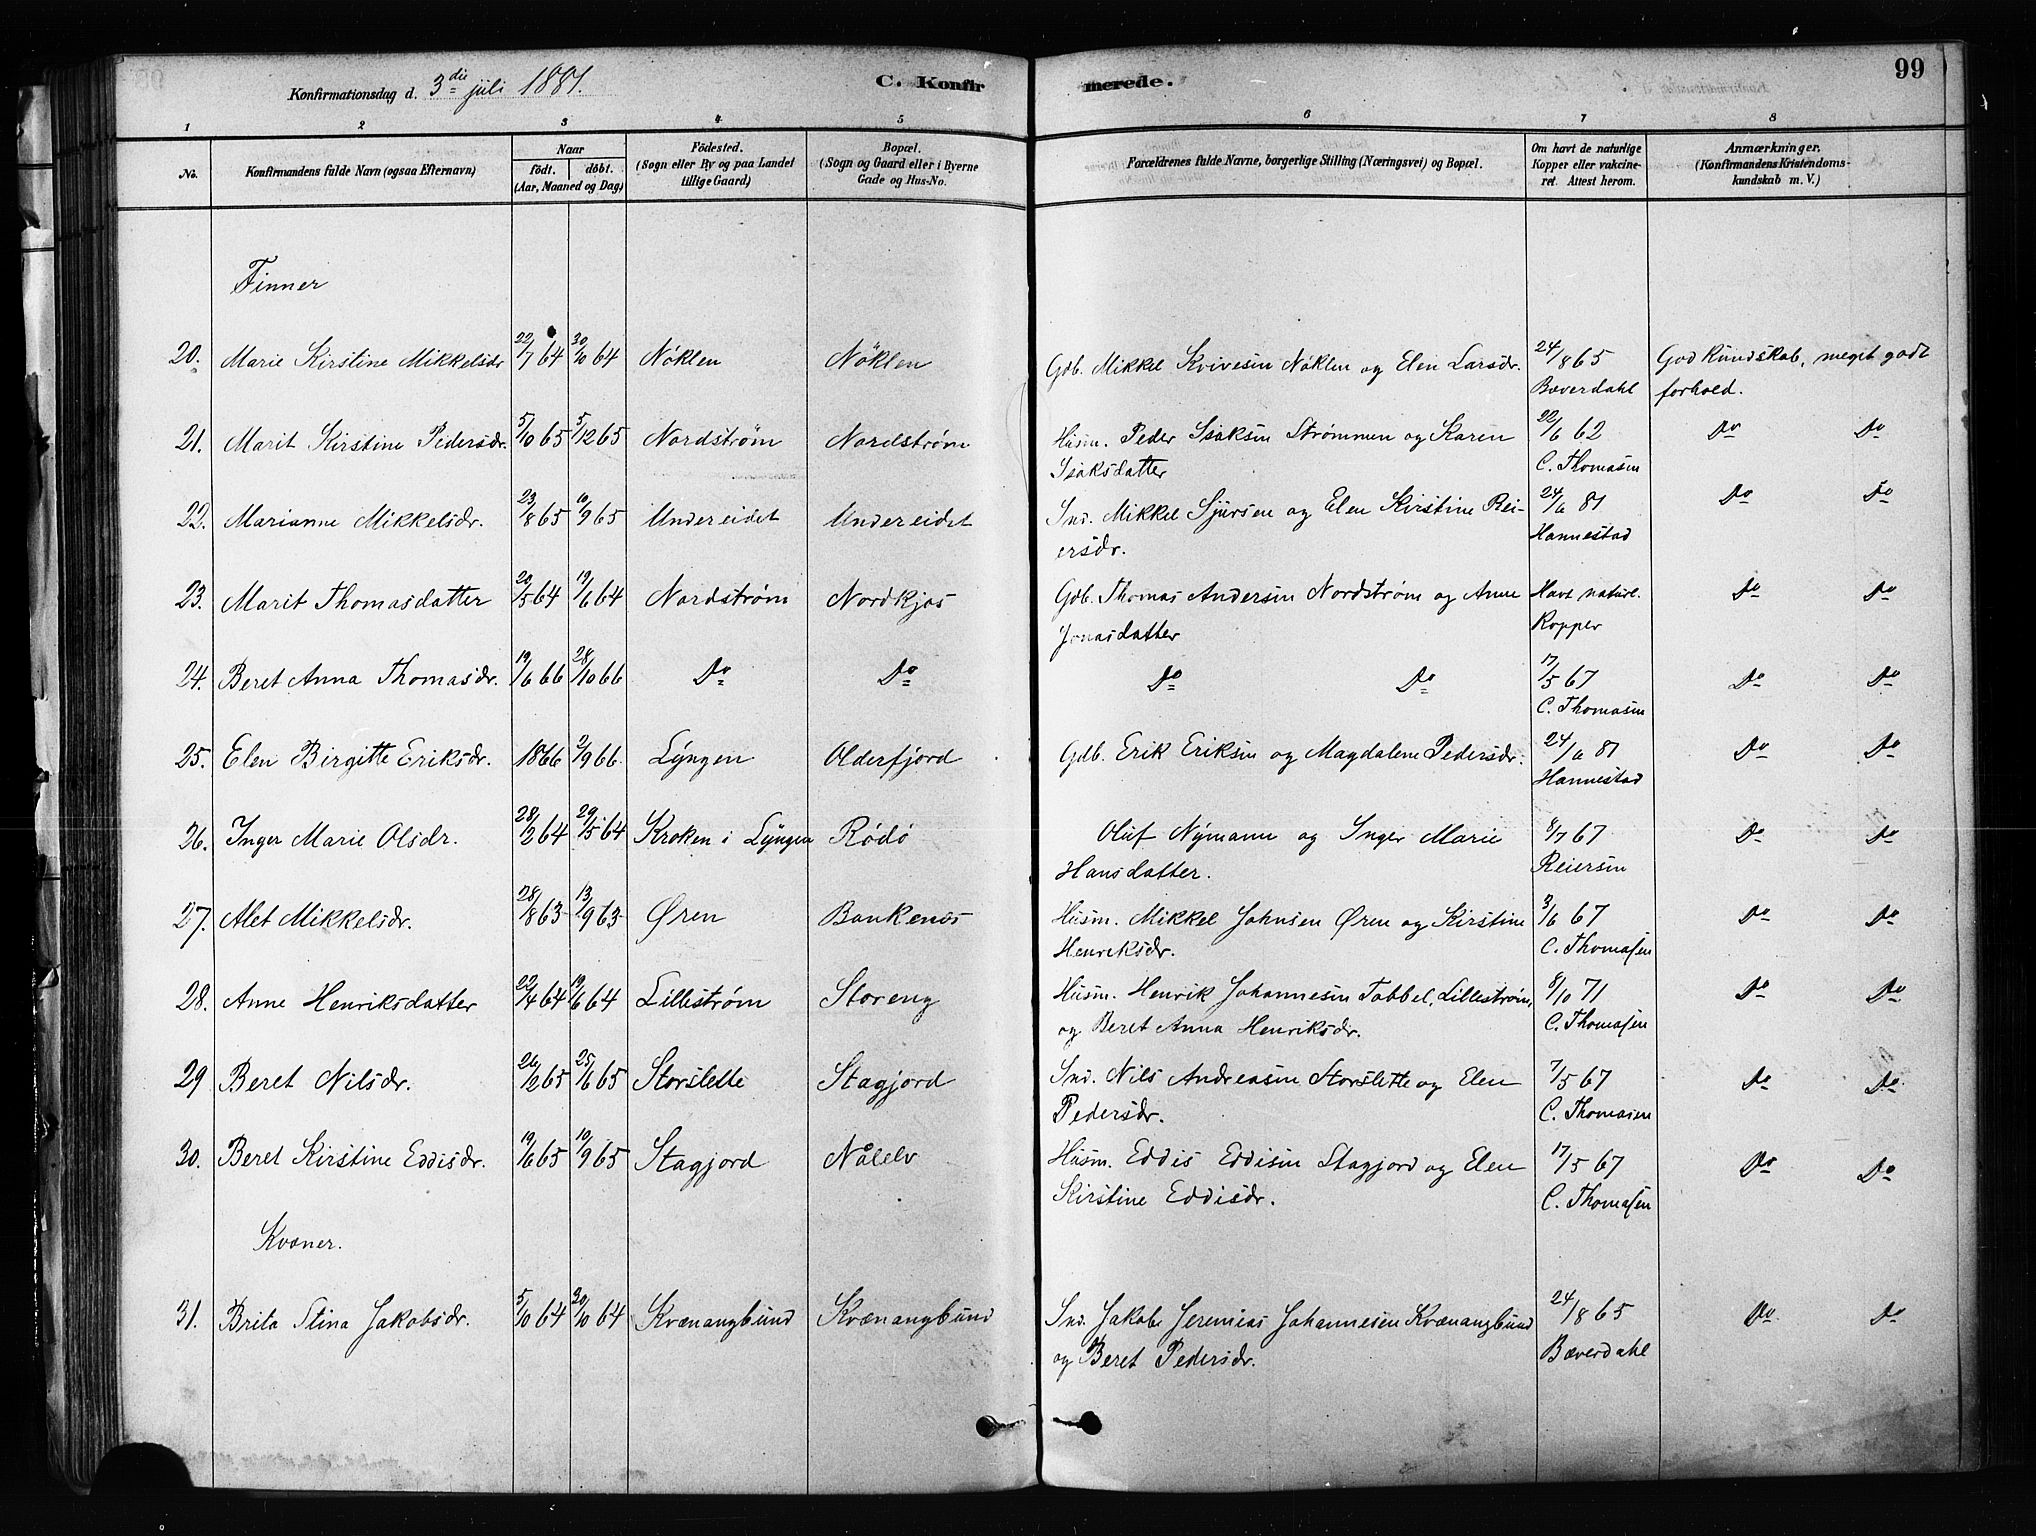 Konfirmationsdag d. 3die juli 1881.
C. Konfirmerede.
99
1 2 3 4 5 6 7 8
No.
Konfirmandens fulde Navn (ogsaa Efternavn)
Naar
födt. döbt.
(Aar, Maaned og Dag)
Födested.
(Sogn eller By og paa Landet
tillige Gaard)
Bopæl.
(Sogn og Gaard eller i Byerne
Gade og Hus-No.
Forældrenes fulde Navne, borgerlige Stilling (Næringsvei) og Bopæl.
Om havt de naturlige
Kopper eller vakcine-
ret. Attest herom.
Anmærkninger.
(Konfirmandens Kristendoms-
kundskab m. V.)
Finner
20. Marie Kirstine Mikkelsdr 22/7 64 30/10 64 Nöklen Nöklen Gdb. Mikkel Kvivesen Nöklen og Elen Larsdr. 24/8 65 God Kundskab, meget godt
Bæverdahl forhold.
21. Marit Kirstine Pedersdr. 5/10 65 5/12 65 Nordström Nordstrøm Husm. Peder Isaksen Strømmen og Karen 22/6 62 Do Do
Isaksdatter C. Thomasen
22. Marianne Mikkelsdr. 23/8 65 10/9 65 Undereidet Undereidet Ind. Mikkel Sjursen og Elen Kirstine Rei- 24/6 81 Do Do
ersdr. Hannestad
23. Marit Thomasdatter 20/5 64 19/6 64 Nordstrøm Nordkjos Gdb. Thomas Andersen Nordstrøm og Anne Havt naturl. Do Do
Jonasdatter Kopper
24. Beret Anna Thomasdr. 19/6 66 28/10 66 Do Do Do Do 17/5 67 Do Do
C. Thomasen
25. Elen Birgitte Eriksdr. 1866 2/9 66. Lyngen Olderfjord Gdb. Erik Eriksen og Magdalene Pedersdr. 24/6 81 Do Do
Hannestad
26. Inger Marie Olsdr. 28/2 64 29/5 64 Kroken i Lyngen Rødö Oluf Nymann og Inger Marie 8/7 67 Do Do
Hansdatter. Reiersen
27. Alet Mikkelsdr. 28/8 63 13/9 63 Øren Bankenes Husm. Mikkel Johnsen Øren og Kirstine 3/6 67 Do Do
Henriksdr. C. Thomasen
28. Anne Henriksdatter 22/4 64 19/6 64 Lillestrøm Storeng Husm. Henrik Johannesen Tabbel, Lillestrøm, 8/10 71 Do Do
og Beret Anna Henriksdr. C. Thomasen
29 Beret Nilsdr. 26/2 65 25/6 65 Storslette Stagjord Ind. Nils Andreasen Storslette og Elen 7/5 67 Do Do
Pedersdr. C. Thomasen
30. Beret Kirstine Eddisdr. 19/6 65 10/9 65 Stagjord Nålelv Husm. Eddis Eddisen Stagjord og Elen 17/5 67 Do Do
Kirstine Eddisdr. C. Thomasen
Kvæner.
31. Brita Stina Jakobsdr. 5/10 64 30/10 64 Kvænangbund Kvænangbund Ind. Jakob Jeremias Johannesen Kvænangbund 24/8 65 Do Do
og Beret Pedersdr. Bæverdahl